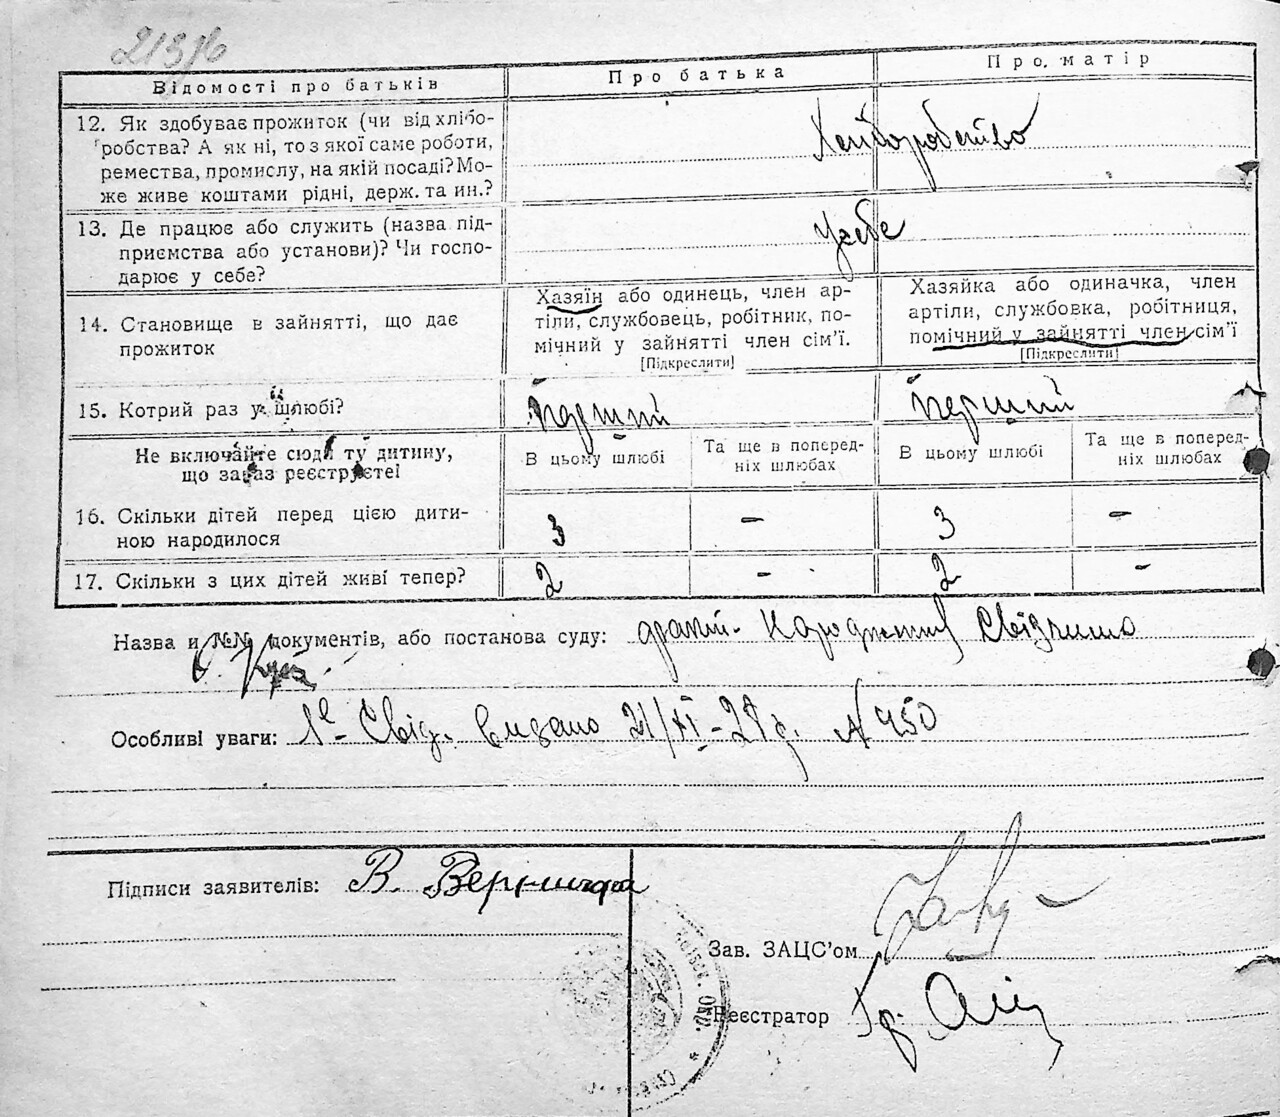 213/6
Відомості про батьків
Про батька
Про матір
12. Як здобуває прожиток (чи від хлібо-
робства? А як ні, то з якої саме роботи,
ремества, промислу, на якій посаді? Мо-
же живе коштами рідні, держ. та ин.?
Хліборобство
13. Де працює або служить (назва під-
приємства або установи)? Чи госпо-
дарює у себе?
У себе
14. Становище в зайнятті, що дає
прожиток
Хазяїн або одинець, член ар-
тіли, службовець, робітник, по-
мічний у зайнятті член сім'ї.
[Підкреслити]
Хазяйка або одиначка, член
артіли, службовка, робітниця,
помічний у зайнятті член сім'ї
[Підкреслити]
15. Котрий раз у шлюбі?
Перший
Перший
Не включайте сюди ту дитину,
що зараз реєструєте!
В цьому шлюбі
Та ще в поперед-
ніх шлюбах
В цьому шлюбі
Та ще в поперед-
ніх шлюбах
16. Скільки дітей перед цією дити-
ною народилося
3
-
3
-
17. Скільки з цих дітей живі тепер?
2
-
2
-
Назва и №№ документів, або постанова суду: факт народження свідчить
Особливі уваги: Свід. видано 21/XI-28 р. № 950
Підписи заявителів: В.
Зав. ЗАЦС'ом
Реєстратор